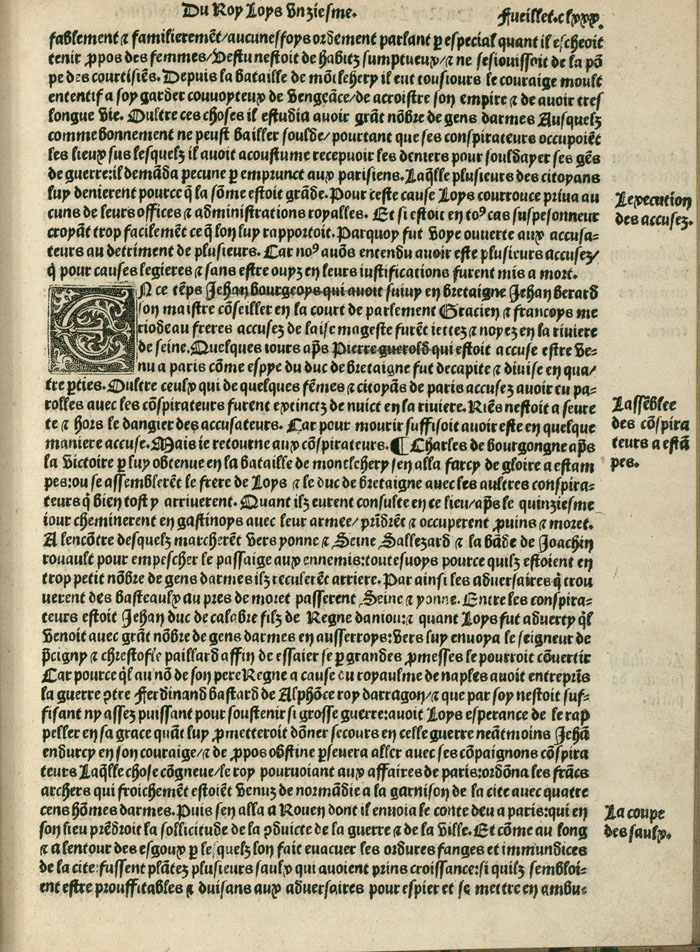 Du Roy Loys Unziesme.
Fueillet.clxxx.
fablement ⁊ familieremēt/aucunesfoys ordement parlant p especial quant il escheoit
tenir ꝓpos des femmes/Vestu nestoit de habitz sumptueux/⁊ ne sesiouissoit de la pō
pe des courtisiēs. Depuis la bataille de mōtlehery il eut tousiours le couraige moult
ententif a soy garder couuoyteux de vengeāce/de acroistre son empire ⁊ de auoir tres
longue vie. Oultre ces choses il estudia auoir grāt nōbre de gens darmes Ausquelz
comme bonnement ne peust bailler soulde/pourtant que ses conspirateurs occupoiēt
les lieux sus lesquelz il auoit acoustume recepuoir les deniers pour souldayer ses gēs
de guerre:il demāda pecune p emprunct aux parisiens. Laq̄lle plusieurs des citoyans
luy denierent pource q̄ la sōme estoit grāde. Pour ceste cause Loys courrouce priua au
cuns de leurs offices ⁊ administrations royalles. Et si estoit en toꝰ cas suspesonneur
croyāt trop facilement ce q̄ lon luy rapportoit. Parquoy fut voye ouuerte aux accusa-
teurs au detriment de plusieurs. Car noꝰ auōs entendu auoir este plusieurs accusez/
q̄ pour causes legieres ⁊ sans estre ouyz en leurs iustifications furent mis a mort.
Lexecution
des accusez.
EN ce tēps Jehan bourgeoys qui auoit suiuy en bretaigne Jehan berard
son maistre cōseiller en la court de parlement Gracien ⁊ francoys me
riodeau freres accusez de laise mageste furēt iettez ⁊ noyez en la riuiere
de seine. Quelques iours ap̄s Pierre guerold qui estoit accuse estre ve-
nu a paris cōme espye du duc de bretaigne fut decapite ⁊ diuise en qua/
tre pties. Oultre ceulx qui de quelques fēmes ⁊ citoyās de paris accusez auoir eu pa-
rolles auec les cōspirateurs furent extinctz de nuict en la riuiere. Riēs nestoit a seure
te ⁊ hors le dangier des accusateurs. Car pour mourir suffisoit auoir este en quelque
maniere accuse. Mais ie retourne aux cōspirateurs. ¶ Charles de bourgongne ap̄s
la victoire p luy obtenue en la bataille de montlehery sen alla farcy de gloire a estam
pes:ou se assemblerēt le frere de Loys ⁊ le duc de bretaigne auec les aultres conspira-
teurs q̄ bien tost y arriuerent. Quant ilz eurent consulte en ce lieu/ap̄s le quinziesme
iour cheminerent en gastinoys auec leur armee/prīdrēt ⁊ occuperent ꝓuins ⁊ moret.
Lassēblee
des cōspira
teurs a estā
pes.
A lencōtre desquelz marcherēt vers yonne ⁊ Seine Sallezard ⁊ la bāde de Joachin
rouault pour empescher le passaige aux ennemis:toutesuoys pource quilz estoient en
trop petit nōbre de gens darmes ilz reculerēt arriere. Par ainsi les aduersaires q̄ trou
uerent des basteaulx au pres de moret passerent Seine ⁊ yonne. Entre les conspira-
teurs estoit Jehan duc de calabre filz de Regne daniou:⁊ quant Loys fut aduerty q̄l
venoit auec grāt nōbre de gens darmes en ausserroys:vers luy enuoya le seigneur de
p̄cigny ⁊ chrestofle paillard affin de essaier se p grandes ꝓmesses le pourroit cōuertir
Car pource q̄l au nō de son pere Regne a cause du royaulme de naples auoit entreprīs
la guerre ꝯtre Ferdinand bastard de Alphōce roy darragon/⁊ que par soy nestoit suf-
fisant ny assez puissant pour soustenir si grosse guerre:auoit Loys esperance de le rap
peller en sa grace quāt luy ꝓmetteroit dōner secours en celle guerre neātmoins Jehā
endurcy en son couraige/⁊ de ꝓpos obstine pseuera aller auec ses cōpaignons cōspira
teurs Laq̄lle chose cōgneue/le roy pouruoiant aux affaires de paris:ordōna les frācs
archers qui froichement estoiēt venuz de normādie a la garnison de la cite auec quatre
cens hōmes darmes. Puis sen alla a Rouen dont il enuoia le conte deu a paris:qui en
son lieu prēdroit la sollicitude de la ꝯduicte de la guerre ⁊ de la ville. Et cōme au long
⁊ a lentour des esgoux p lesquelz lon fait euacuer les ordures fanges et immundices
de la cite fussent plātez plusieurs saulx qui auoient prins croissance:si quilz sembloi-
ent estre prouffitables ⁊ duisans aux aduersaires pour espier et se mettre en ambu-
La coupe
des saulx.